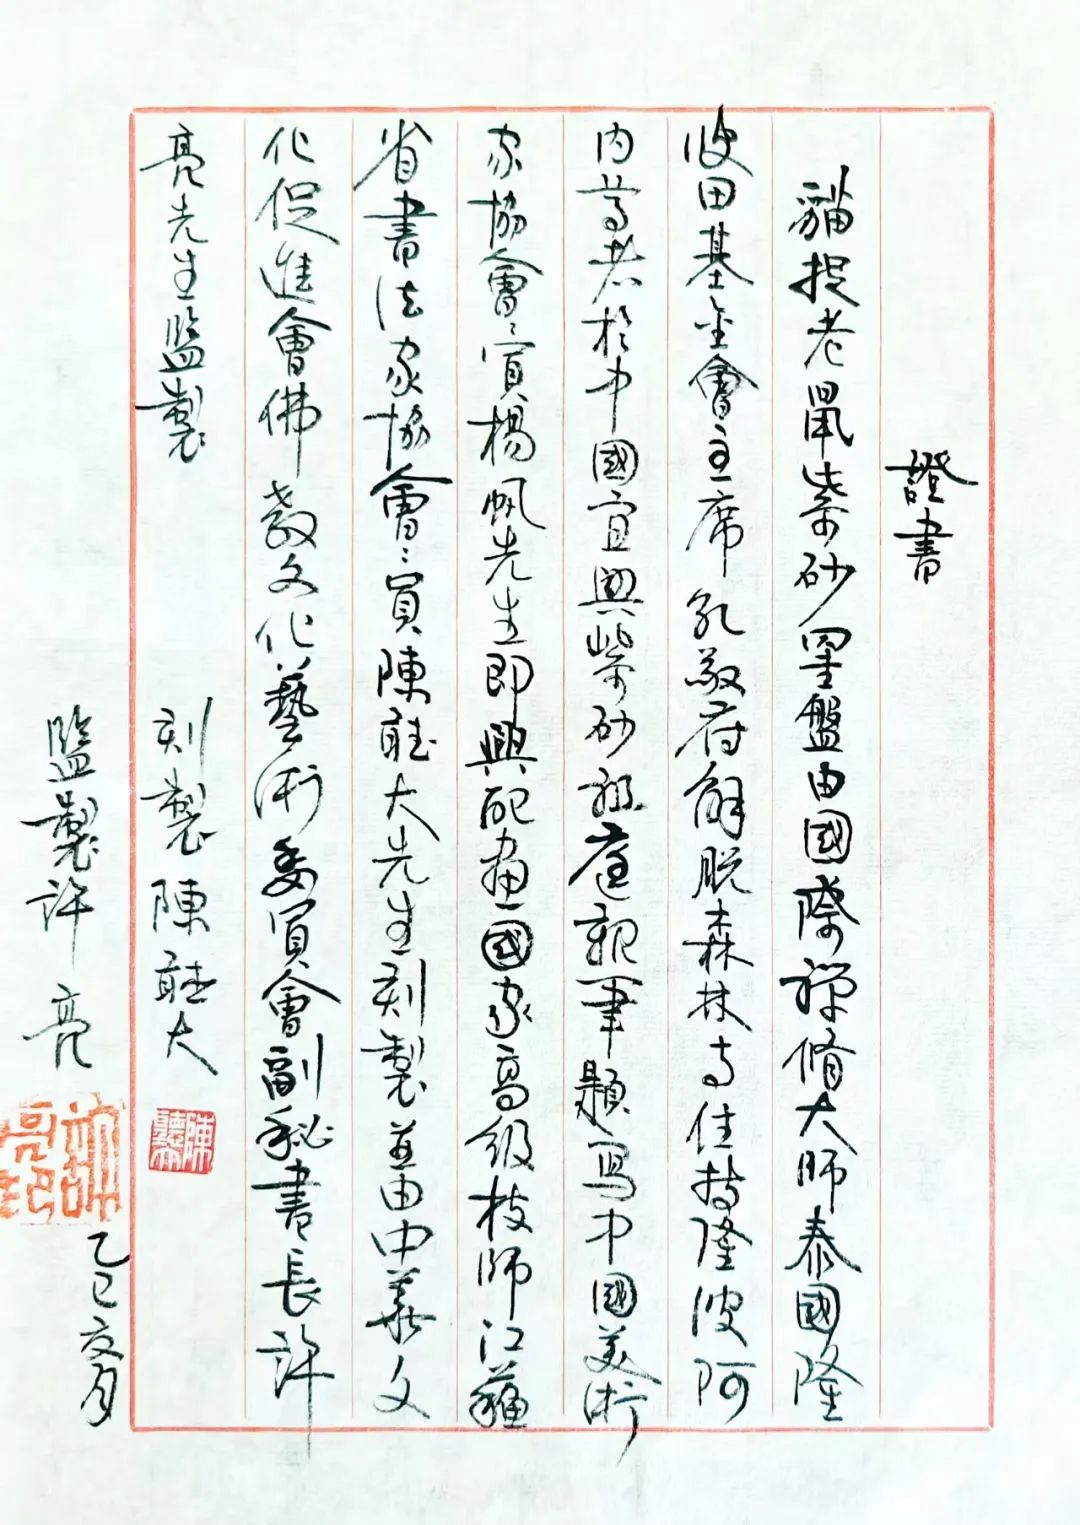 證書
貓捉老鼠紫砂墨盤由國際禪修大師泰國隆
波田基金會主席孔敬府解脫森林寺住持隆波阿
內尊者於中國宜興紫砂祖庭親筆題写中國美術
家協會會員楊帆先生即興配畫國家高級技師江蘇
省書法家協會會員陳聽大先生刻製並由中華文
化促進會佛教文化藝術委員會副秘書長許
亮先生監製
刻製陳聽大
監製許亮
乙巳亥月